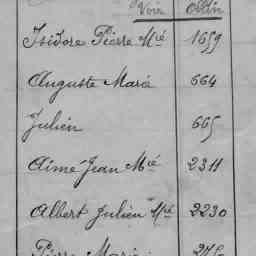 Isidore Pierre Mié 1659
Auguste Marie 664
Julien 665
Aimé Jean Mié 2311
Albert Julien Mié 2230
Pierre Marie